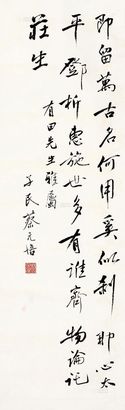 即留萬古名何用奚似刹那心太
平鄧析惠施世多有誰齊物論託
莊生
有田先生雅屬
孑民蔡元培